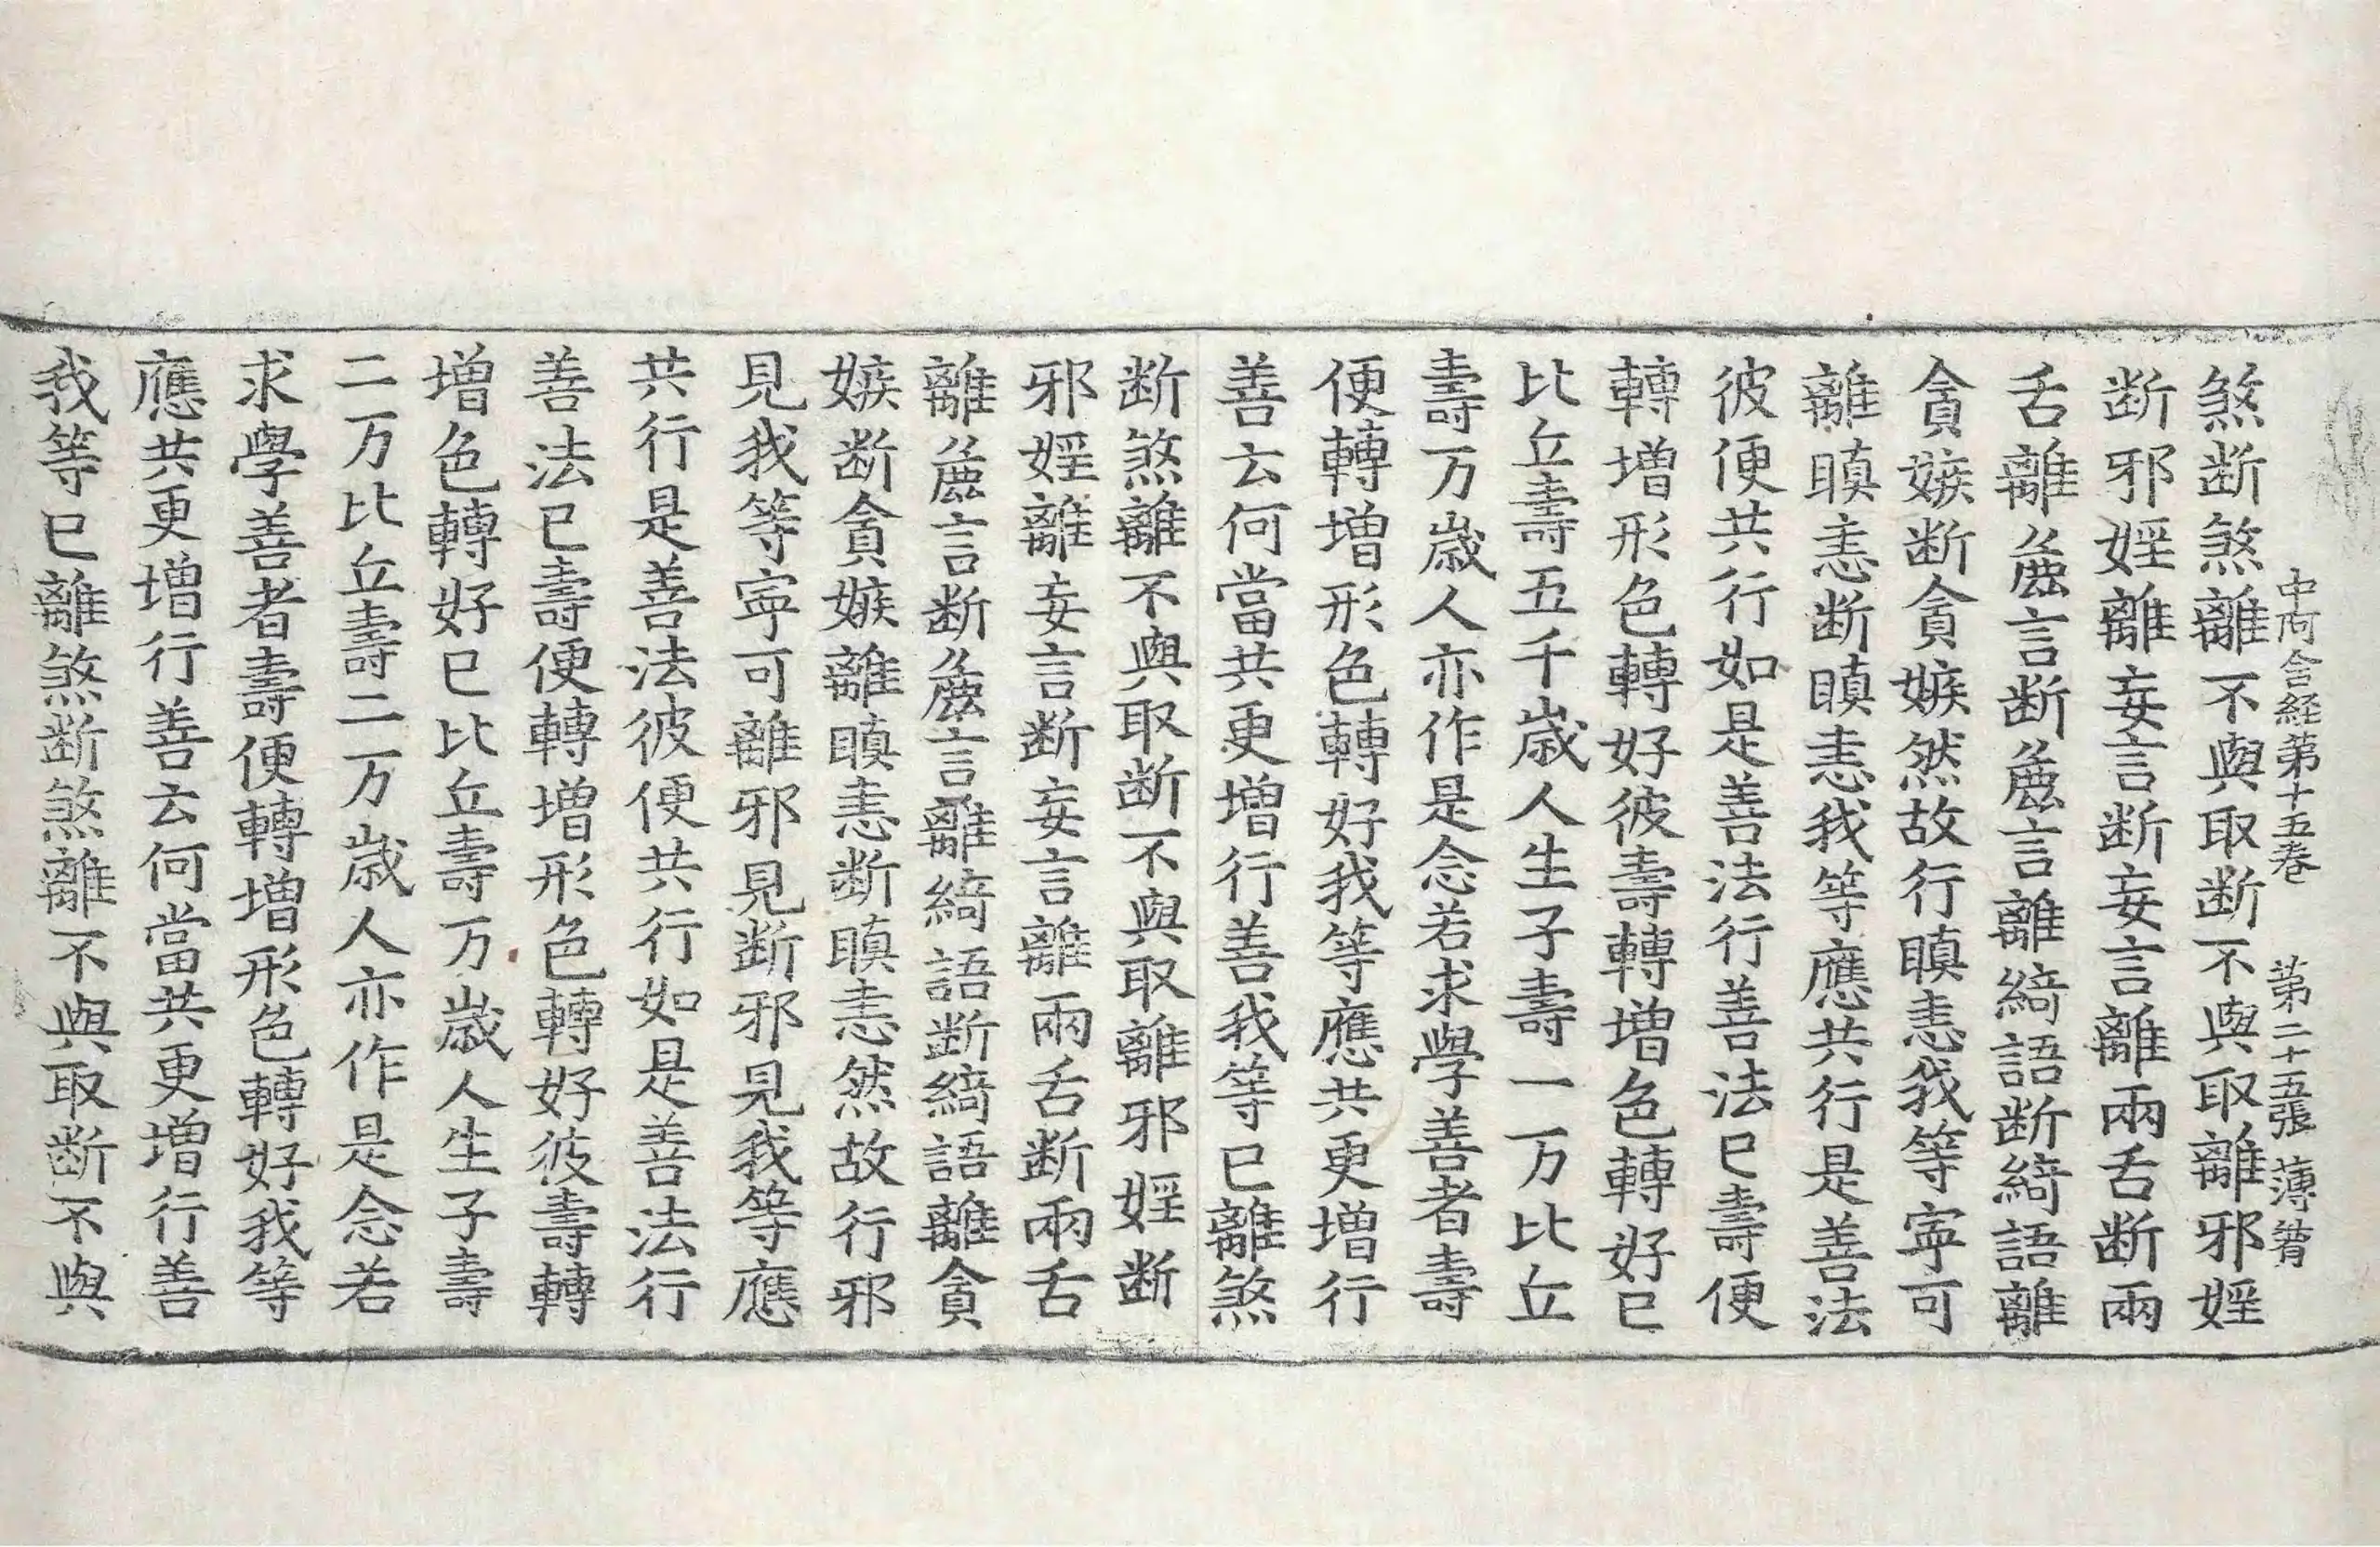 中阿含経第十五巻　第二十五張　薄
煞断煞離不與取断不與取離邪婬
断邪婬離妄言断妄言離兩舌断兩
舌離麁言断麁言離綺語断綺語離
貪嫉断貪嫉然故行瞋恚我等寧可
離瞋恚断瞋恚我等應共行是善法
彼便共行如是善法行善法已壽便
轉增形色轉好彼壽轉增色轉好已
比丘壽五千歲人生子壽一万比丘
壽万歲人亦作是念若求學善者壽
便轉增形色轉好我等應共更增行
善云何當共更增行善我等已離煞
断煞離不與取断不與取離邪婬断
邪婬離妄言断妄言離兩舌断兩舌
離麁言断麁言離綺語断綺語離貪
嫉断貪嫉離瞋恚断瞋恚然故行邪
見我等寧可離邪見断邪見我等應
共行是善法彼便共行如是善法行
善法已壽便轉增形色轉好彼壽轉
增色轉好已比丘壽万歲人生子壽
二万比丘壽二万歲人亦作是念若
求學善者壽便轉增形色轉好我等
應共更增行善云何當共更增行善
我等已離煞断煞離不與取断不與